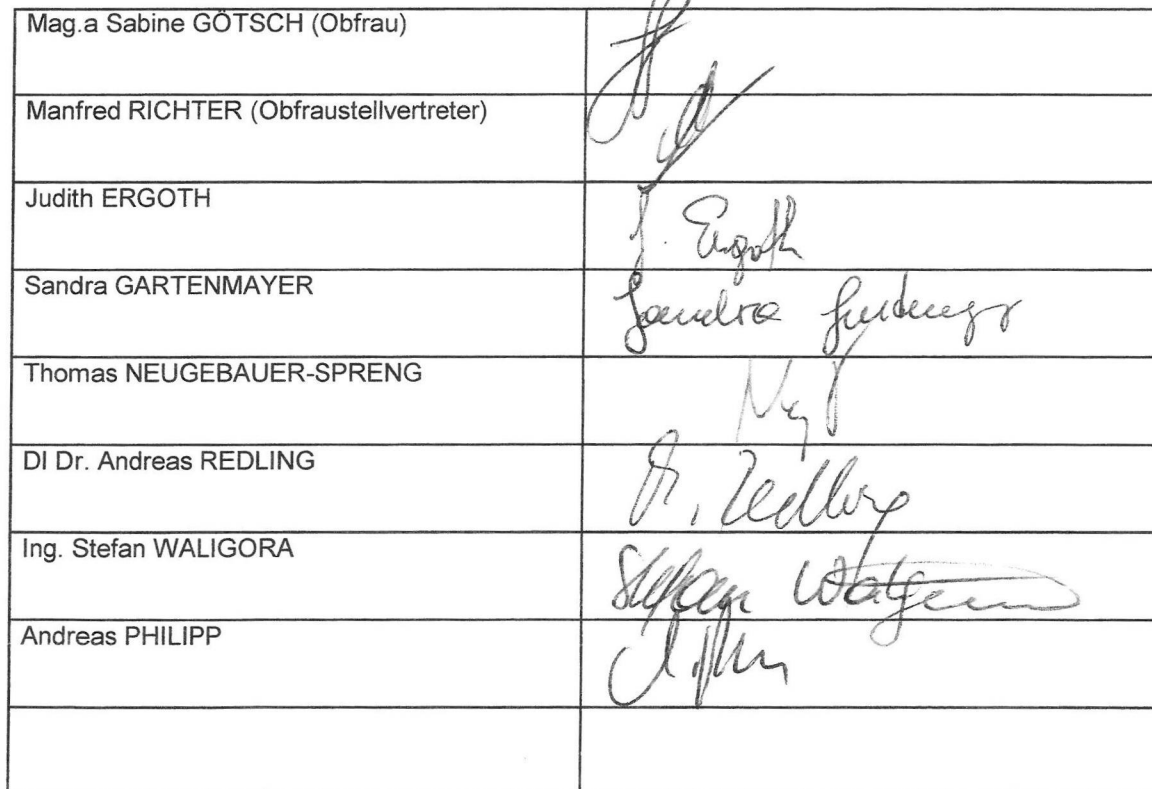 Mag.a Sabine GÖTSCH (Obfrau)
Manfred RICHTER (Obfraustellvertreter)
Judith ERGOTH
J. Ergoth
Sandra GARTENMAYER
Sandra
Thomas NEUGEBAUER-SPRENG
DI Dr. Andreas REDLING
Redling
Ing. Stefan WALIGORA
Stefan
Andreas PHILIPP